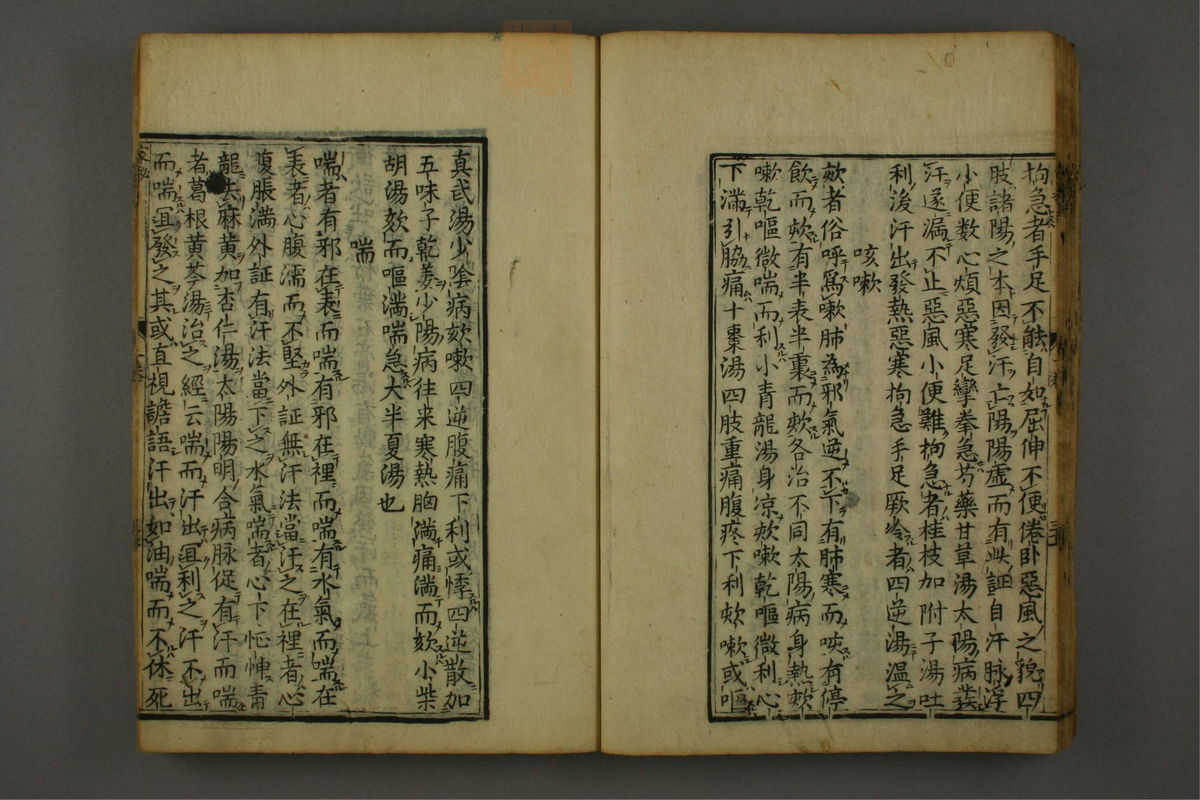 拘急者手足不能自如屈伸不便倦卧惡風之貌四
肢諸陽之本因發汗亡陽陽虛而有此証自汗脉浮
小便数心煩惡寒足攣拳急芍藥甘草湯太陽病發
汗遂漏不止惡風小便難拘急者桂枝加附子湯吐
利後汗出發熱惡寒拘急手足厥冷者四逆湯温之
咳嗽
欬者俗呼爲嗽肺為邪氣逆不下有肺寒而咳有停
飲而欬有半表半裏而欬各治不同太陽病身熱欬
嗽乾嘔微喘而利小青龍湯身凉欬嗽乾嘔微利心
下滿引脇痛十棗湯四肢重痛腹疼下利欬嗽或嘔
真武湯少陰病欬嗽四逆腹痛下利或悸四逆散加
五味子乾姜少陽病往来寒熱胸満痛満而欬小柴
胡湯欬而嘔満喘急大半夏湯也
喘
喘者有邪在表而喘有邪在裡而喘有水氣而喘在
表者心腹濡而不堅外証無汗法當汗之在裡者心
腹脹満外証有汗法當下之水氣喘者心下怔忡青
龍去麻黄加杏仁湯太陽陽明合病脉促有汗而喘
者葛根黄芩湯治之經云喘而汗出宜利之汗不出
而喘宜發之其或直視譫語汗出如油喘而不休死